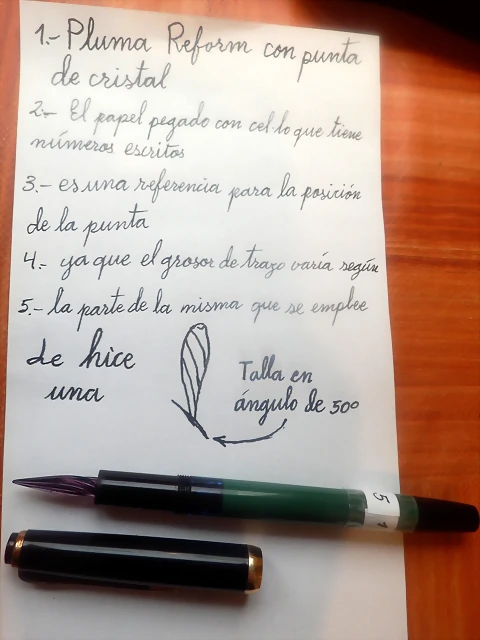 1.- Pluma Reform con punta
de cristal
2.- El papel pegado con cel·lo que tiene
números escritos
3.- es una referencia para la posición
de la punta
4.- ya que el grosor de trazo varía según
5.- la parte de la misma que se emplee
Le hice
una
Talla en
ángulo de 50º
5